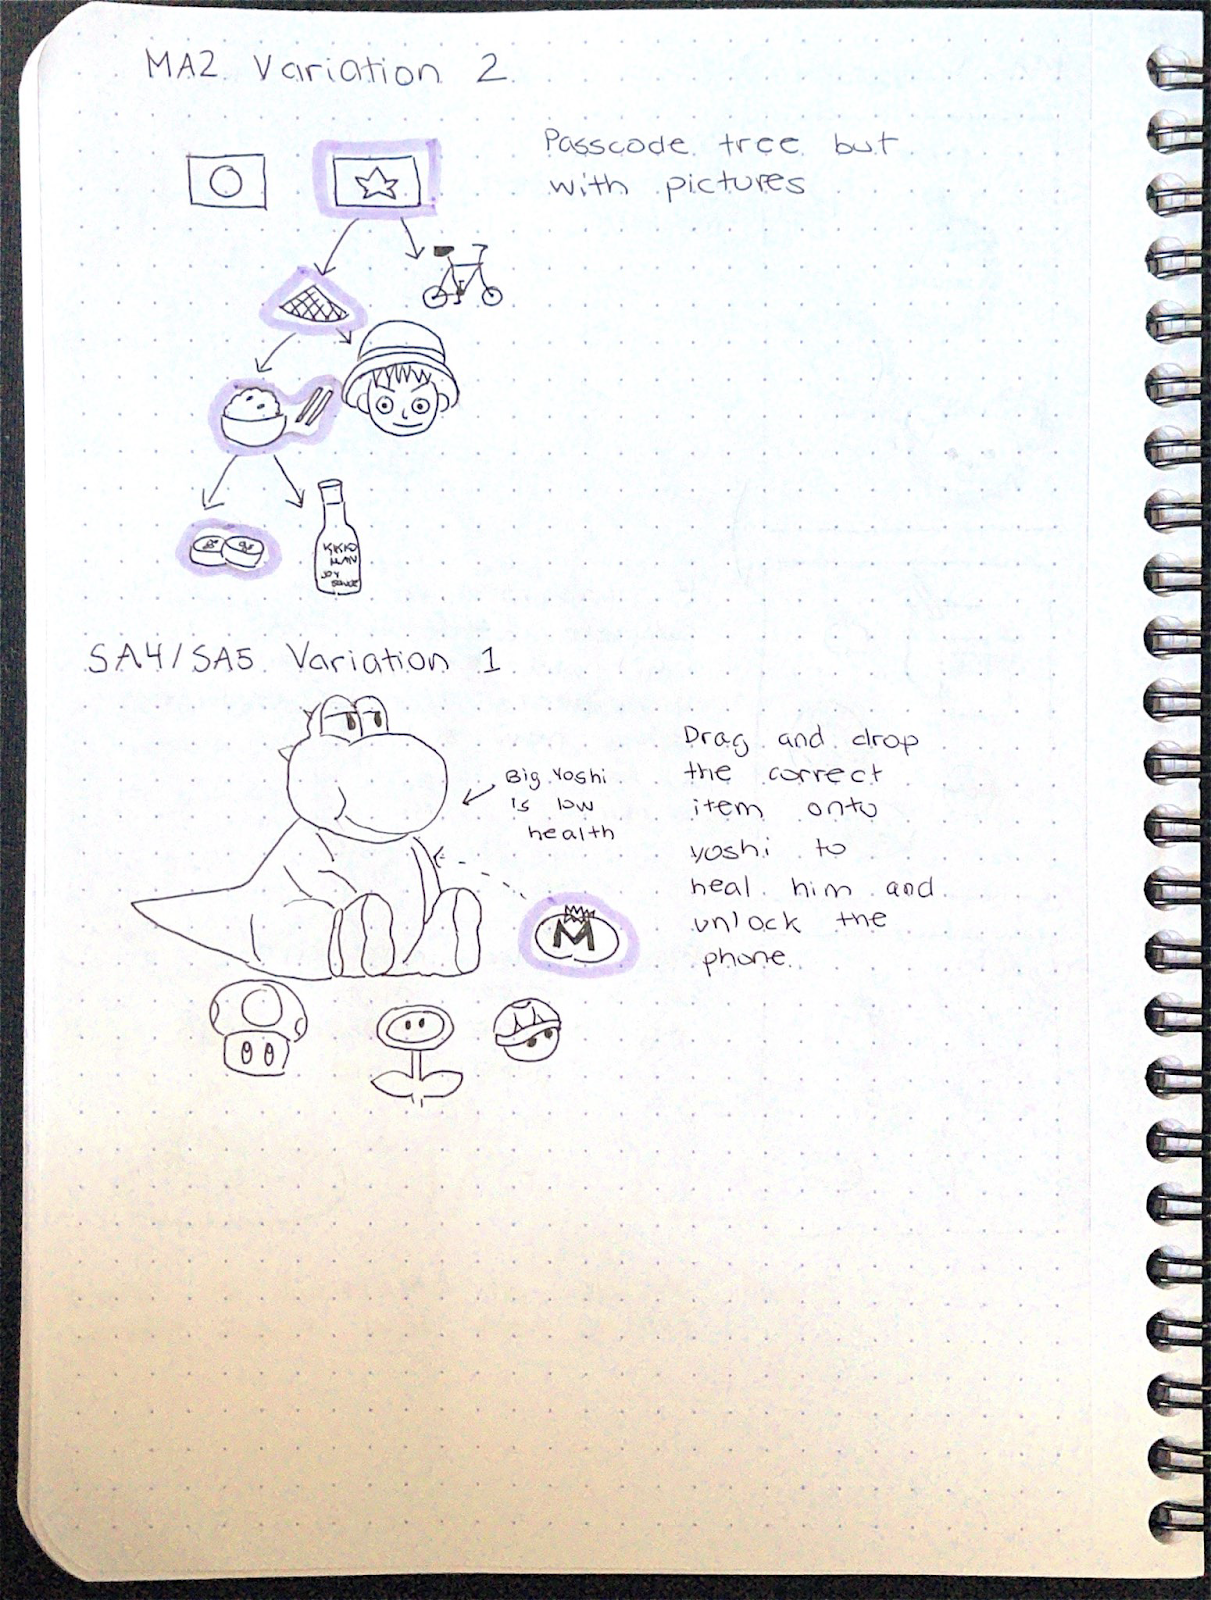 MA2 Variation 2
Passcode tree but
with pictures
KIKKO
MAN
SOY
SAUCE
SA4/SA5 Variation 1
Big Yoshi
is low
health
Drag and drop
the correct
item onto
yoshi to
heal him and
unlock the
phone.
M